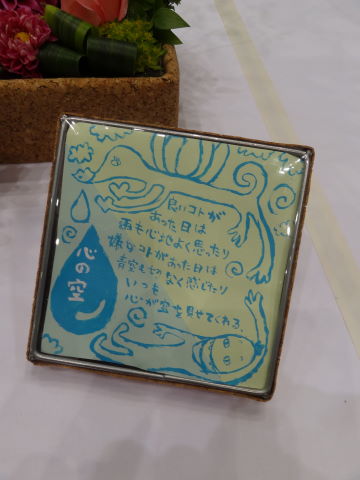 心の空
良いコトが
あった日は
雨も心地よく思ったり
嫌なコトがあった日は
青空も切なく感じたり
いつも
心が空を見せてくれる。